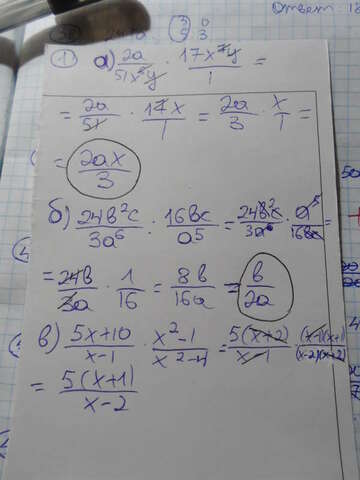 Ответ: 18
1) а) 2a/51x²y · 17x³y/1 =
= 2a/51 · 17x/1 = 2a/3 · x/1 =
= 2ax/3
б) 24b²c/3a⁶ : 16bc/a⁵ = 24b²c/3a⁶ · a⁵/16bc =
= 24b/3a · 1/16 = 8b/16a = b/2a
в) 5x+10/x-1 · x²-1/x²-4 = 5(x+2)/x-1 · (x-1)(x+1)/(x-2)(x+2)
= 5(x+1)/x-2